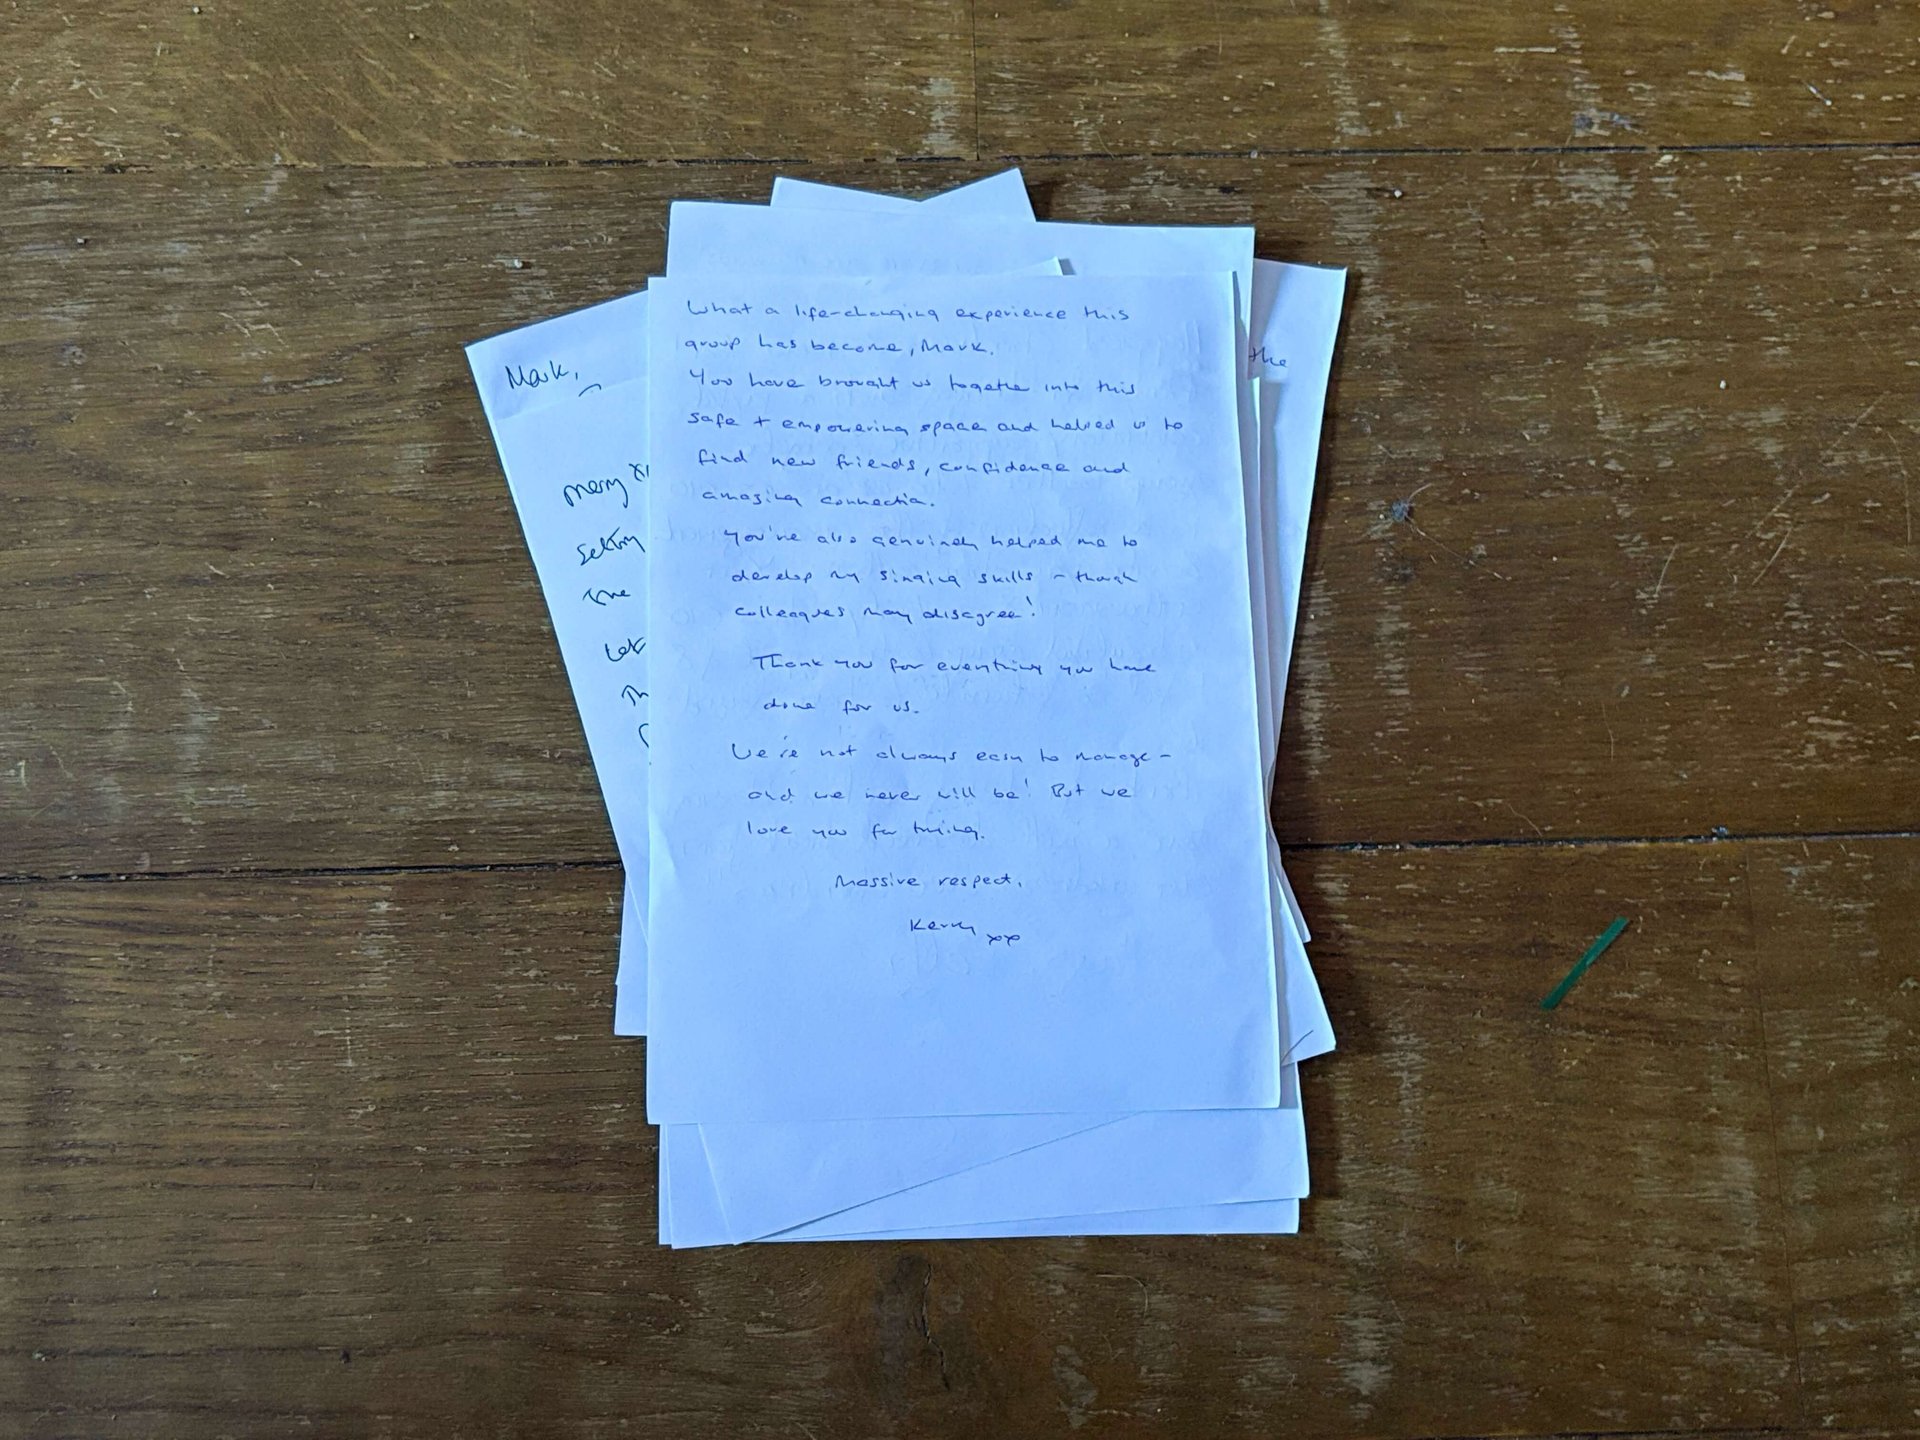 What a life-changing experience this
group has become, Mark.
You have brought us together into this
safe + empowering space and helped us to
find new friends, confidence and
amazing connection.
You've also genuinely helped me to
develop my singing skills - though
colleagues may disagree!
Thank you for everything you have
done for us.
We're not always easy to manage -
and we never will be! But we
love you for trying.
Massive respect,
Kerry xx
Mark,
Merry
Setting
the